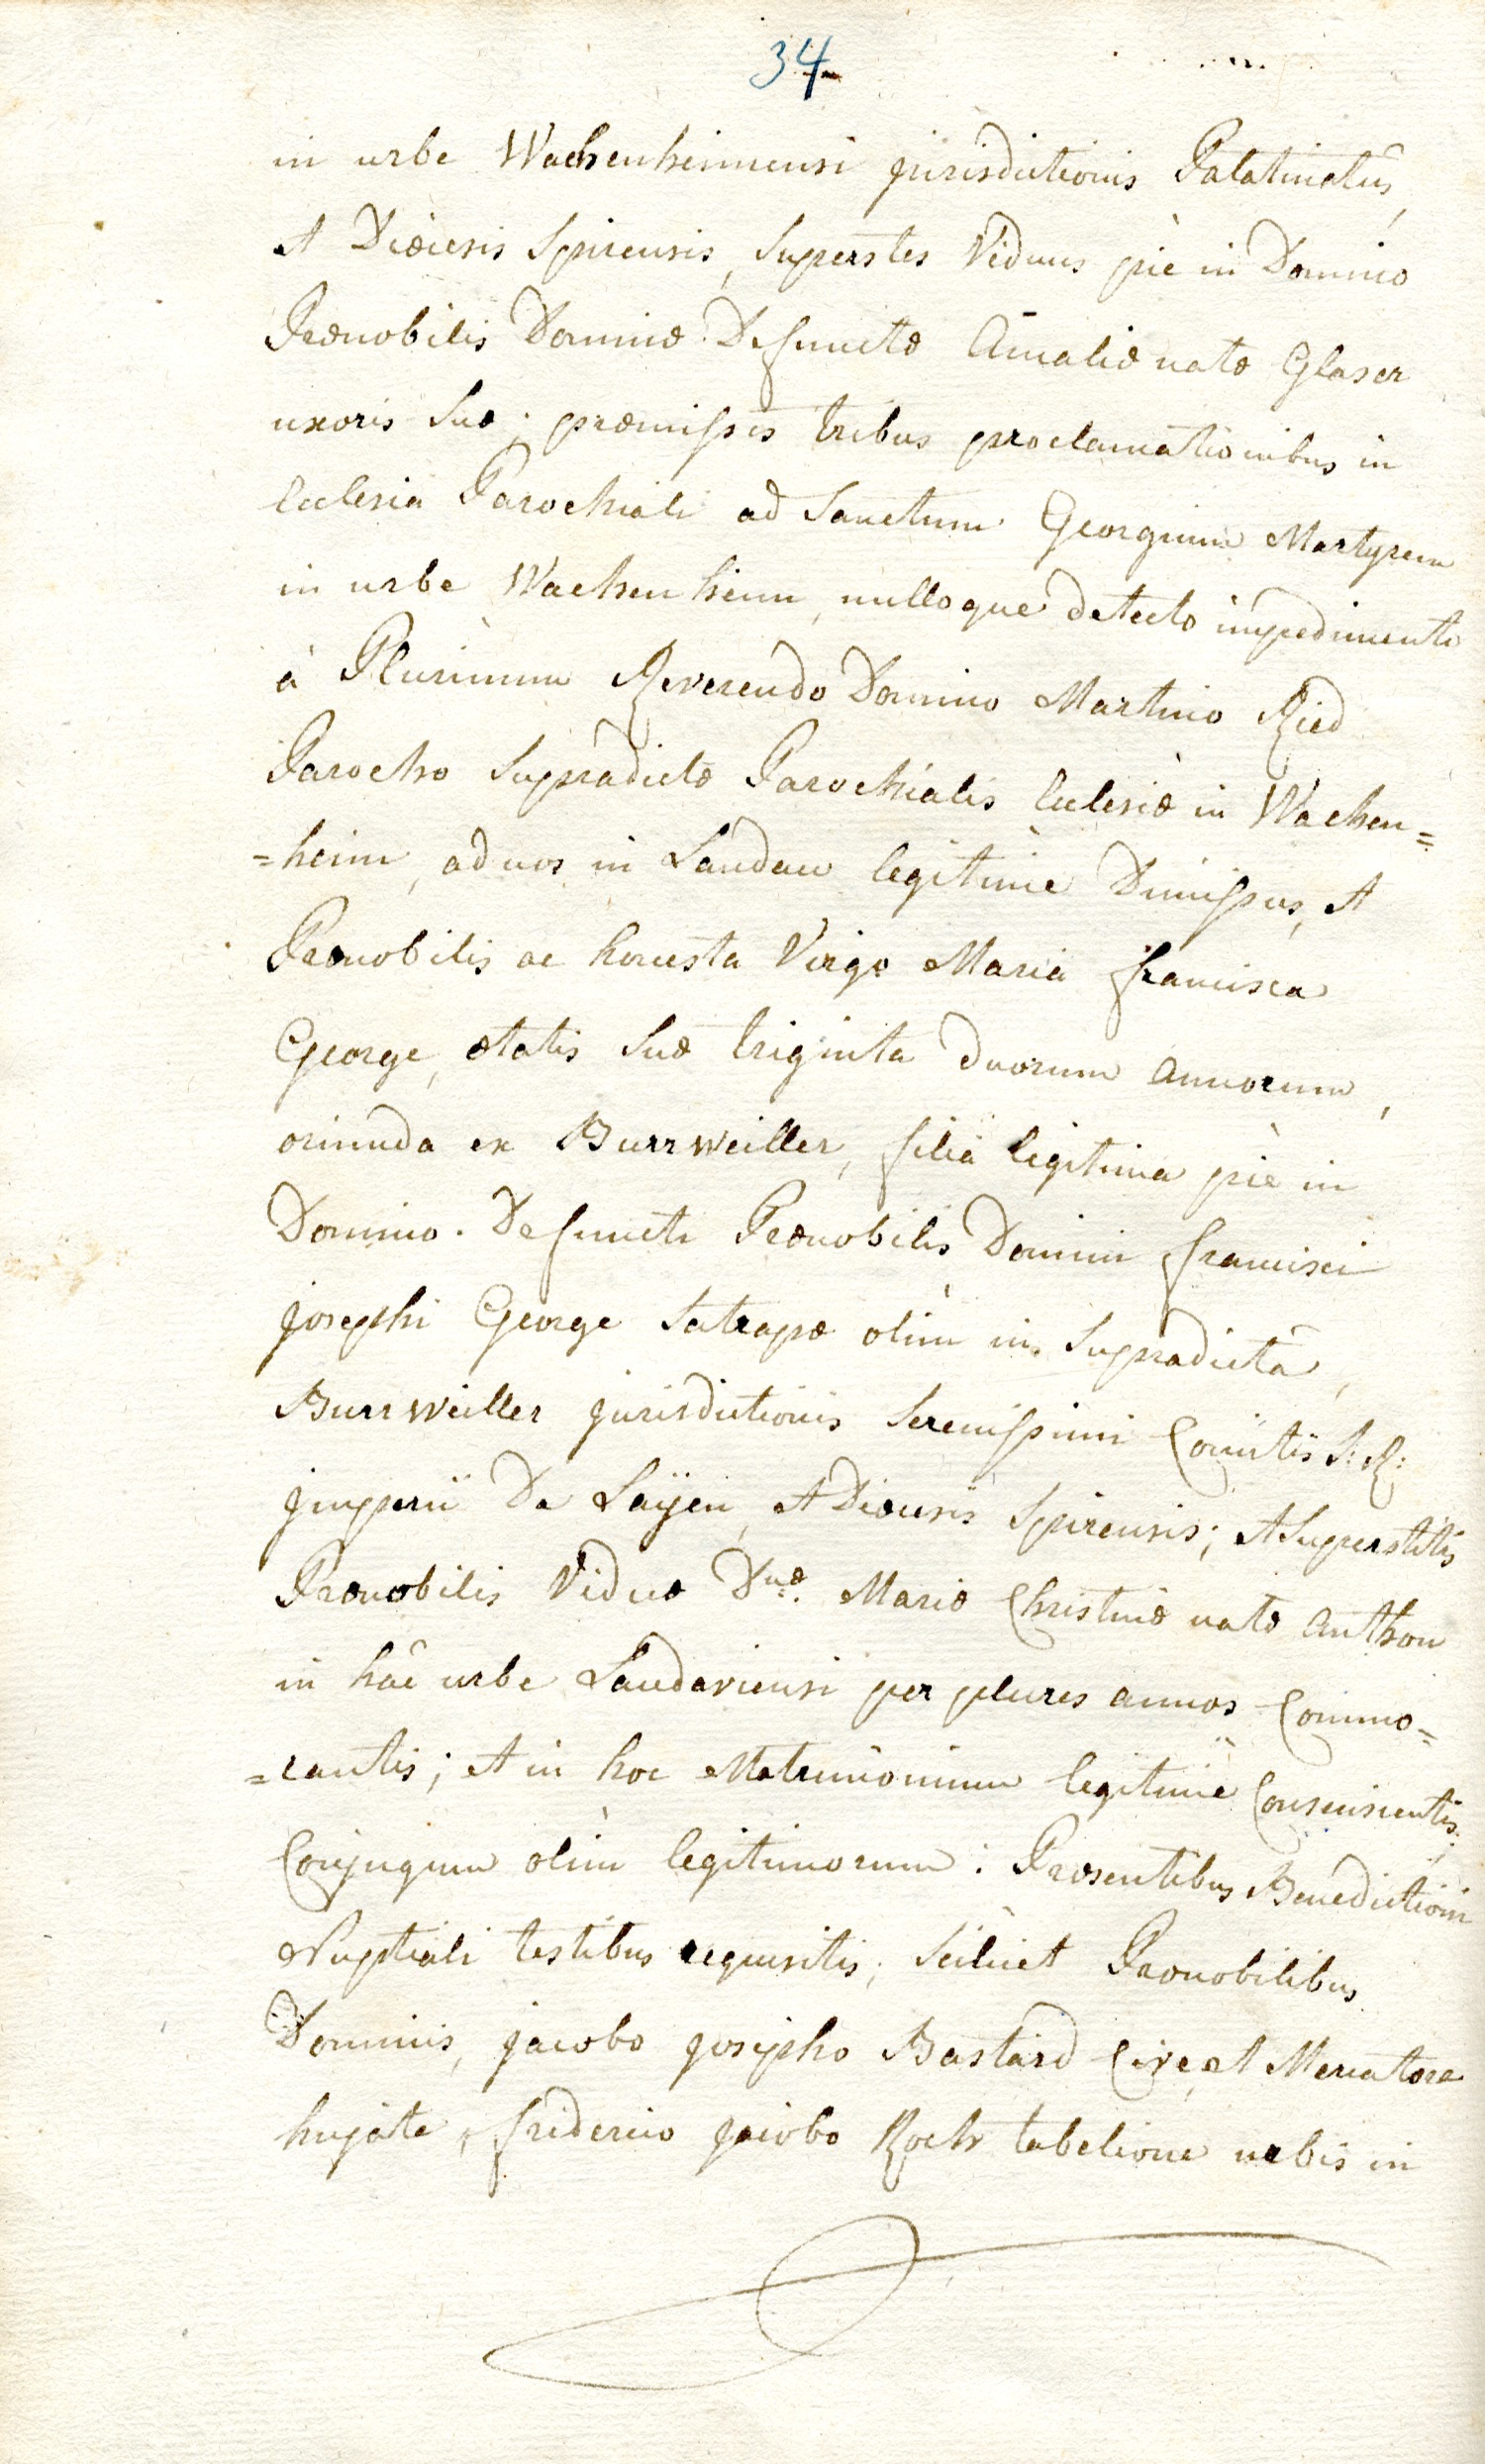 34
in urbe Wachenheimensi jurisdictionis Palatinatûs,
et Dioecesis Spirensis, Superstes Viduus piè in Domino
Prænobilis Dominæ Defunctæ Amaliæ natæ Glaser
uxoris Suæ; præmissis tribus proclamationibus in
Ecclesia Parochiali ad Sanctum Georgium Martyrem
in urbe Wachenheim, nulloque detecto impedimento
à Plurimum Reverendo Domino Martino Ried
Parocho Supradictæ Parochialis Ecclesiæ in Wachen=
=heim, ad nos in Landau legitimè Dimissus, et
Prænobilis ac honesta Virgo Maria francisca
George, ætatis Suæ triginta duorum annorum,
oriunda ex Burrweiller, filia legitima piè in
Domino Defuncti Prænobilis Domini francisci
josephi George Satrapæ olim in Supradictâ
Burrweiller jurisdictionis Serenissimi Comitis S: R:
jmperii De Laÿen, et Dioecesis Spirensis; et Superstitis
Prænobilis Viduæ Dnæ. Mariæ Christinæ natæ Anthon
in hâc urbe Landaviensi per plures annos Commo=
=rantis; et in hoc Matrimonium legitimè Consensientis;
Conjugum olim legitimorum: Præsentibus Benedictioni
Nuptiali testibus requisitis, Scilicet Prænobilibus
Dominis, jacobo josepho Bastard Cive et Mercatore
hujate, friderico jacobo Koch tabelione urbis in